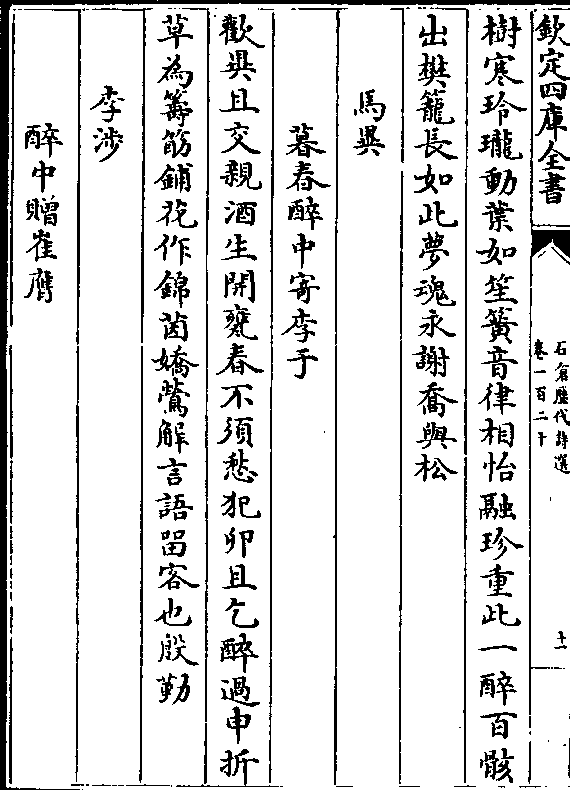 欽定四庫全書
石倉歷代詩選
卷一百二十
十一
樹寒玲瓏動葉如笙簧音律相怡融珍重此一醉百骸
出樊籠長如此夢魂永謝喬與松
馬異
暮春醉中寄李于
歡異且交親酒生開甕春不須愁犯卯且乞醉過申折
草為籌筯鋪花作錦茵嬌鶯解言語留客也殷勤
李涉
醉中贈崔膺